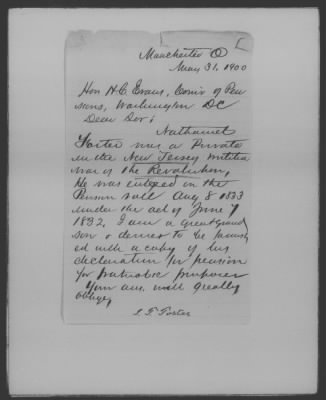 Manchester O
May 31. 1900
Hon H. C. Evans, Com'r of Pen
sions, Washington DC
Dear Sir;
Nathaniel
Foster was a Private
in the New Jersey Militia
war of the Revolution,
He was entered on the
Pension roll Aug 8 1833
under the act of June 7
1832. I am a great grand
son & desire to be furnish
ed with a copy of his
declaration for pension
for patriotic purposes
Your ans. will greatly
oblige,
L F Foster